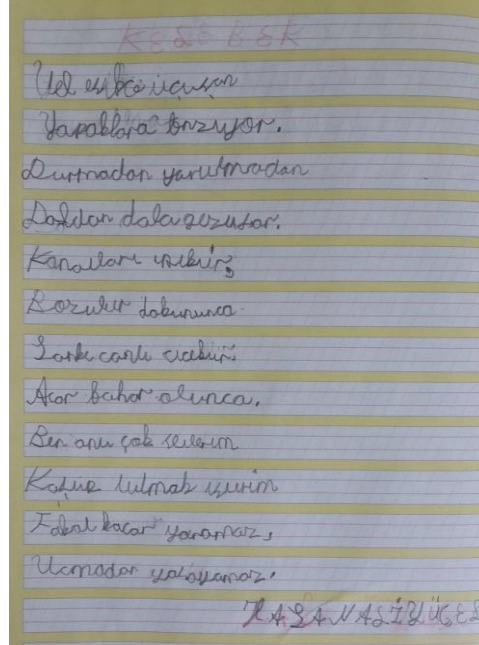 KELEBEK
Yel esince uçuşan
Yapraklara benziyor.
Durmadan yorulmadan
Daldan dala geziyor.
Kanatları
Bozulur dokununca
Sanki canlı çiçektir
Açar bahar olunca.
Ben onu çok severim
Koşup tutmak isterim
Fakat kaçar yaramaz,
Uçmadan yaşayamaz.
HASAN ALİ YÜCEL